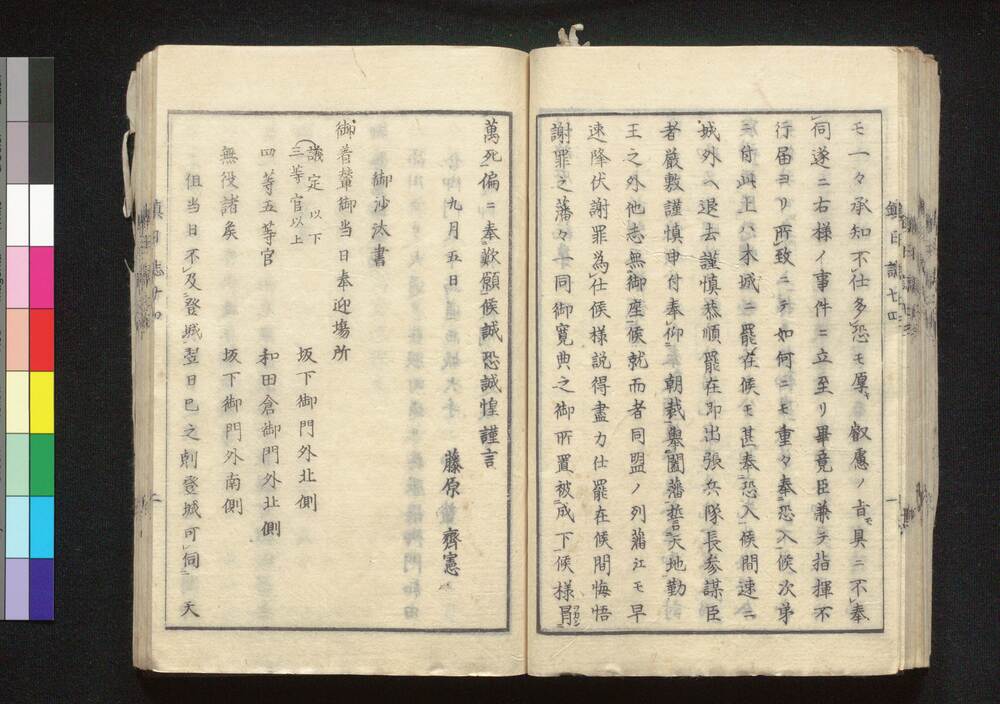 モ一々承知不仕多恐モ厚叡慮ノ旨モ具ニ不奉
伺遂ニ右様ノ事件ニ立至リ畢竟臣兼テ指揮不
行届ヨリ所致ニテ如何ニモ重々奉恐入候次第
ニ付此上ハ本城ニ罷在候モ甚奉恐入候間速ニ
城外ヘ退去謹慎恭順罷在即出張兵隊長参謀臣
者厳敷謹慎申付奉仰朝裁挙闔藩誓天地勤
王之外他志無御座候就而者同盟ノ列藩江モ早
速降伏謝罪為仕候様説得尽力仕罷在候間悔悟
謝罪之藩々
同御寛典之御所置被成下候様冐
フカシ
萬死偏ニ奉歎願候誠恐誠惶謹言
九月五日
藤原
齊憲
御沙汰書
御着輦御当日奉迎場所
議定以下
三等官以上
坂下御門外北側
四等五等官
和田倉御門外北側
無役諸矦
坂下御門外南側
但当日不及登城翌日巳之剋登城可伺天
鎮日誌七四
一
鎮日誌七四
二